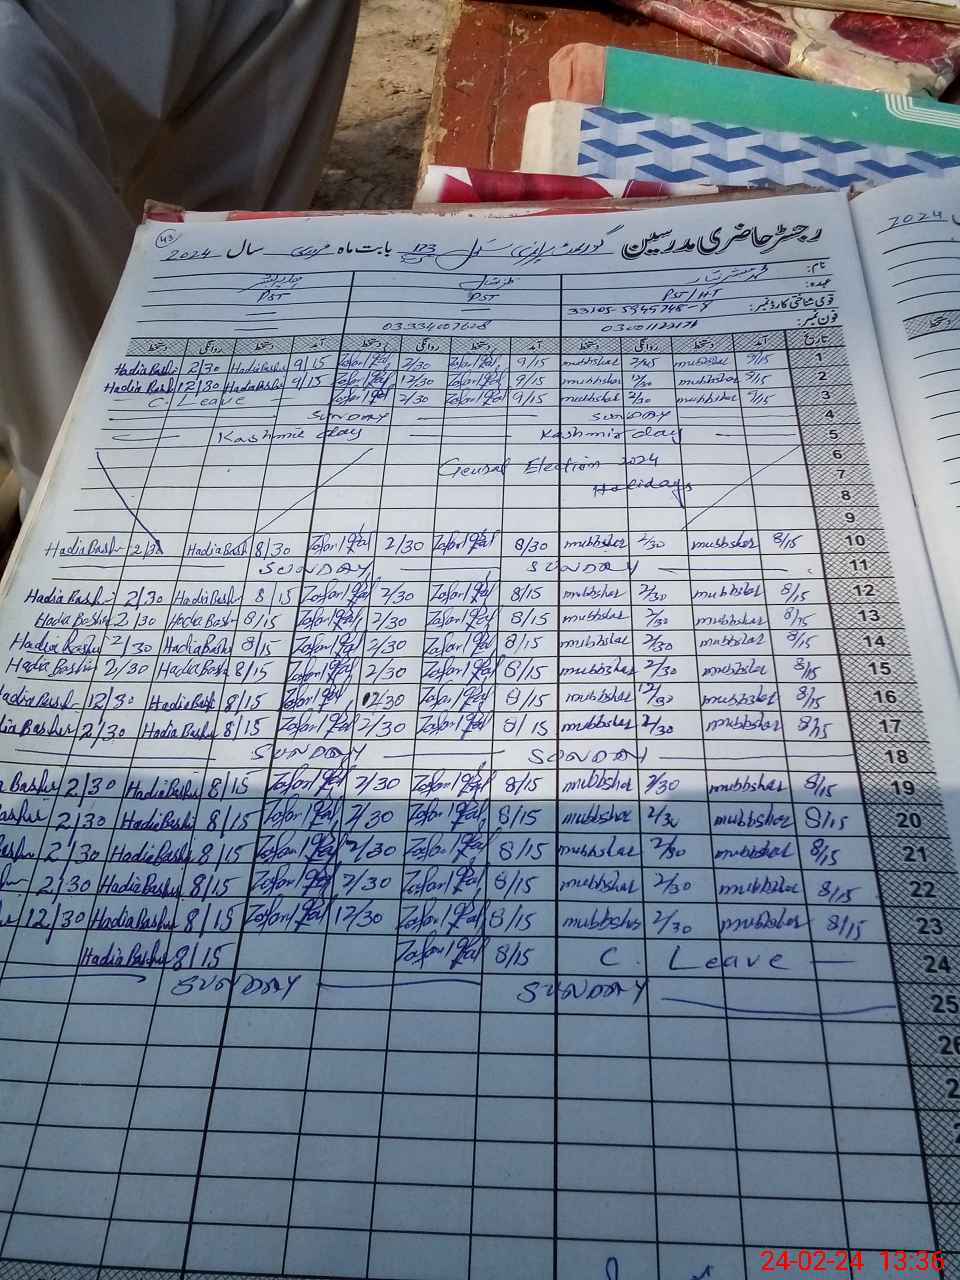 43
رجسٹر حاضری مدرسین گورنمنٹ پرائمری سکول 123 بابت ماہ فروری سال 2024
2024
نام:
عہدہ: PST/HT PST PST
قومی شناختی کارڈ نمبر:
فون نمبر:
تاریخ آمد دستخط روانگی دستخط آمد دستخط روانگی دستخط آمد دستخط روانگی دستخط
Hadia Bashir 2/30 Hadia Bashir 9/15 Zafar Iqbal 2/30 Zafar Iqbal 9/15 mubbshar 2/45 mubbshar 9/15 1
Hadia Bashir 12/30 Hadia Bashir 9/15 Zafar Iqbal 12/30 Zafar Iqbal 9/15 mubbshar 12/30 mubbshar 9/15 2
C. Leave Zafar Iqbal 2/30 Zafar Iqbal 9/15 mubbshar 2/30 mubbshar 9/15 3
SUNDAY SUNDAY 4
Kashmir day Kashmir day 5
6
General Election 2024 7
Holidays 8
9
Hadia Bashir 2/30 Hadia Bashir 8/30 Zafar Iqbal 2/30 Zafar Iqbal 8/30 mubbshar 2/30 mubbshar 8/15 10
SUNDAY SUNDAY 11
Hadia Bashir 2/30 Hadia Bashir 8/15 Zafar Iqbal 2/30 Zafar Iqbal 8/15 mubbshar 2/30 mubbshar 8/15 12
Hadia Bashir 2/30 Hadia Bashir 8/15 Zafar Iqbal 2/30 Zafar Iqbal 8/15 mubbshar 2/30 mubbshar 8/15 13
Hadia Bashir 2/30 Hadia Bashir 8/15 Zafar Iqbal 2/30 Zafar Iqbal 8/15 mubbshar 2/30 mubbshar 8/15 14
Hadia Bashir 2/30 Hadia Bashir 8/15 Zafar Iqbal 2/30 Zafar Iqbal 8/15 mubbshar 2/30 mubbshar 8/15 15
Hadia Bashir 12/30 Hadia Bashir 8/15 Zafar Iqbal 12/30 Zafar Iqbal 8/15 mubbshar 12/30 mubbshar 8/15 16
dia Bashir 2/30 Hadia Bashir 8/15 Zafar Iqbal 2/30 Zafar Iqbal 8/15 mubbshar 2/30 mubbshar 8/15 17
SUNDAY SUNDAY 18
a Bashir 2/30 Hadia Bashir 8/15 Zafar Iqbal 2/30 Zafar Iqbal 8/15 mubbshar 2/30 mubbshar 8/15 19
Bashir 2/30 Hadia Bashir 8/15 Zafar Iqbal 2/30 Zafar Iqbal 8/15 mubbshar 2/30 mubbshar 8/15 20
2/30 Hadia Bashir 8/15 Zafar Iqbal 2/30 Zafar Iqbal 8/15 mubbshar 2/30 mubbshar 8/15 21
2/30 Hadia Bashir 8/15 Zafar Iqbal 2/30 Zafar Iqbal 8/15 mubbshar 2/30 mubbshar 8/15 22
12/30 Hadia Bashir 8/15 Zafar Iqbal 12/30 Zafar Iqbal 8/15 mubbshar 2/30 mubbshar 8/15 23
Hadia Bashir 8/15 Zafar Iqbal 8/15 C. Leave 24
SUNDAY SUNDAY 25
26
24-02-24 13:36